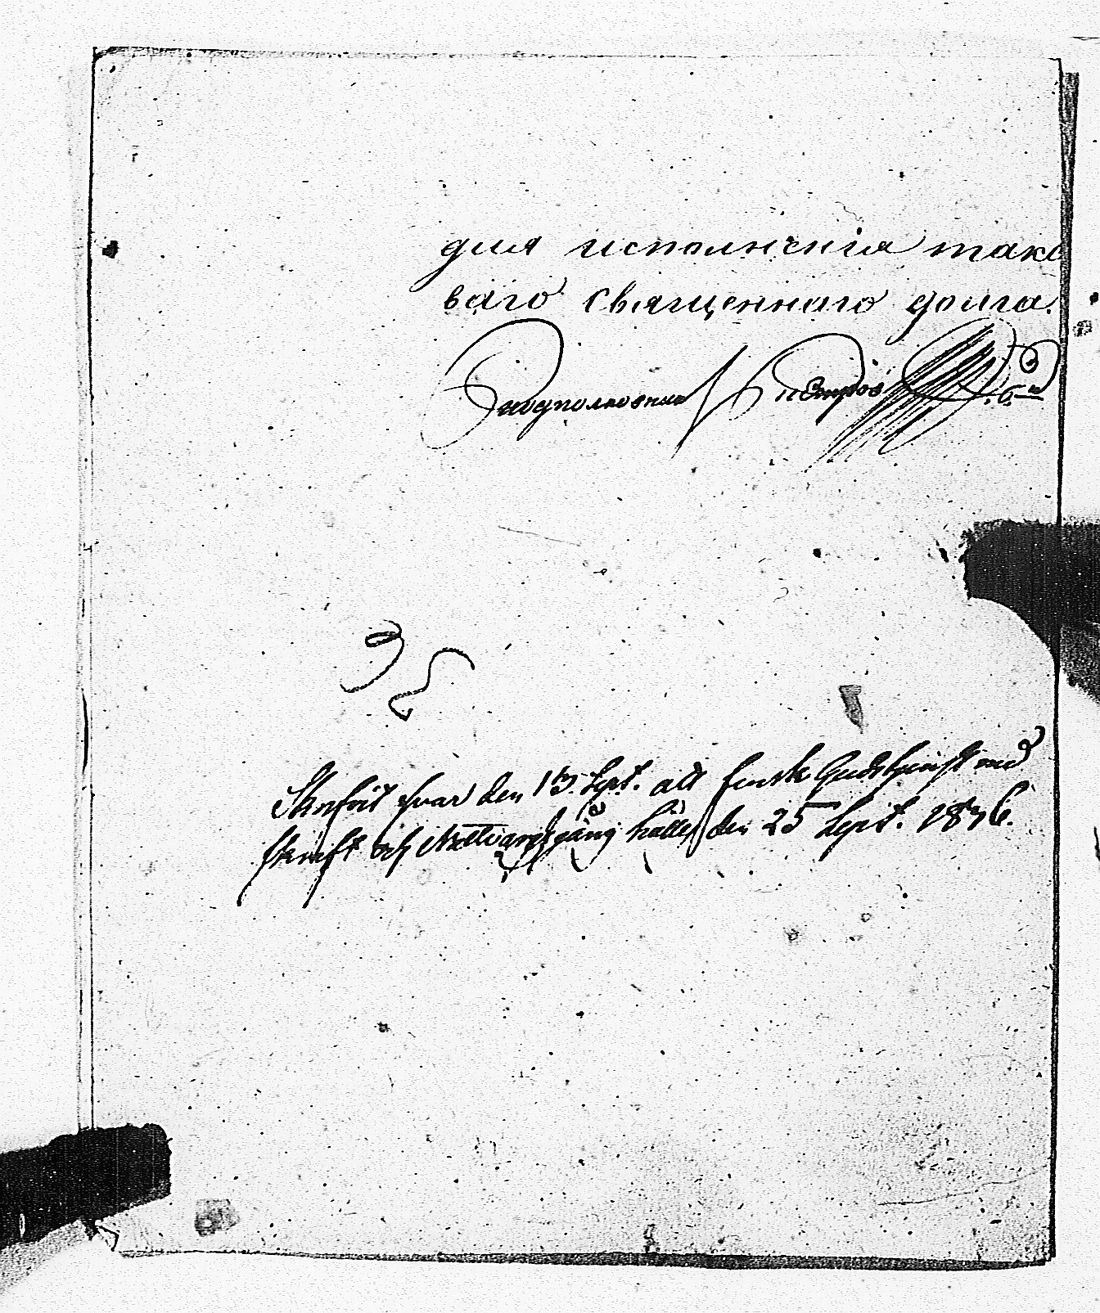 для исполненія тако
ваго священнаго долга.
Подполковникъ Петров
Skrefvit svar den 13 Sept. att finsk Gudstjenst med
skrift och Nattvardsgång hålles den 25 Sept. 1876.